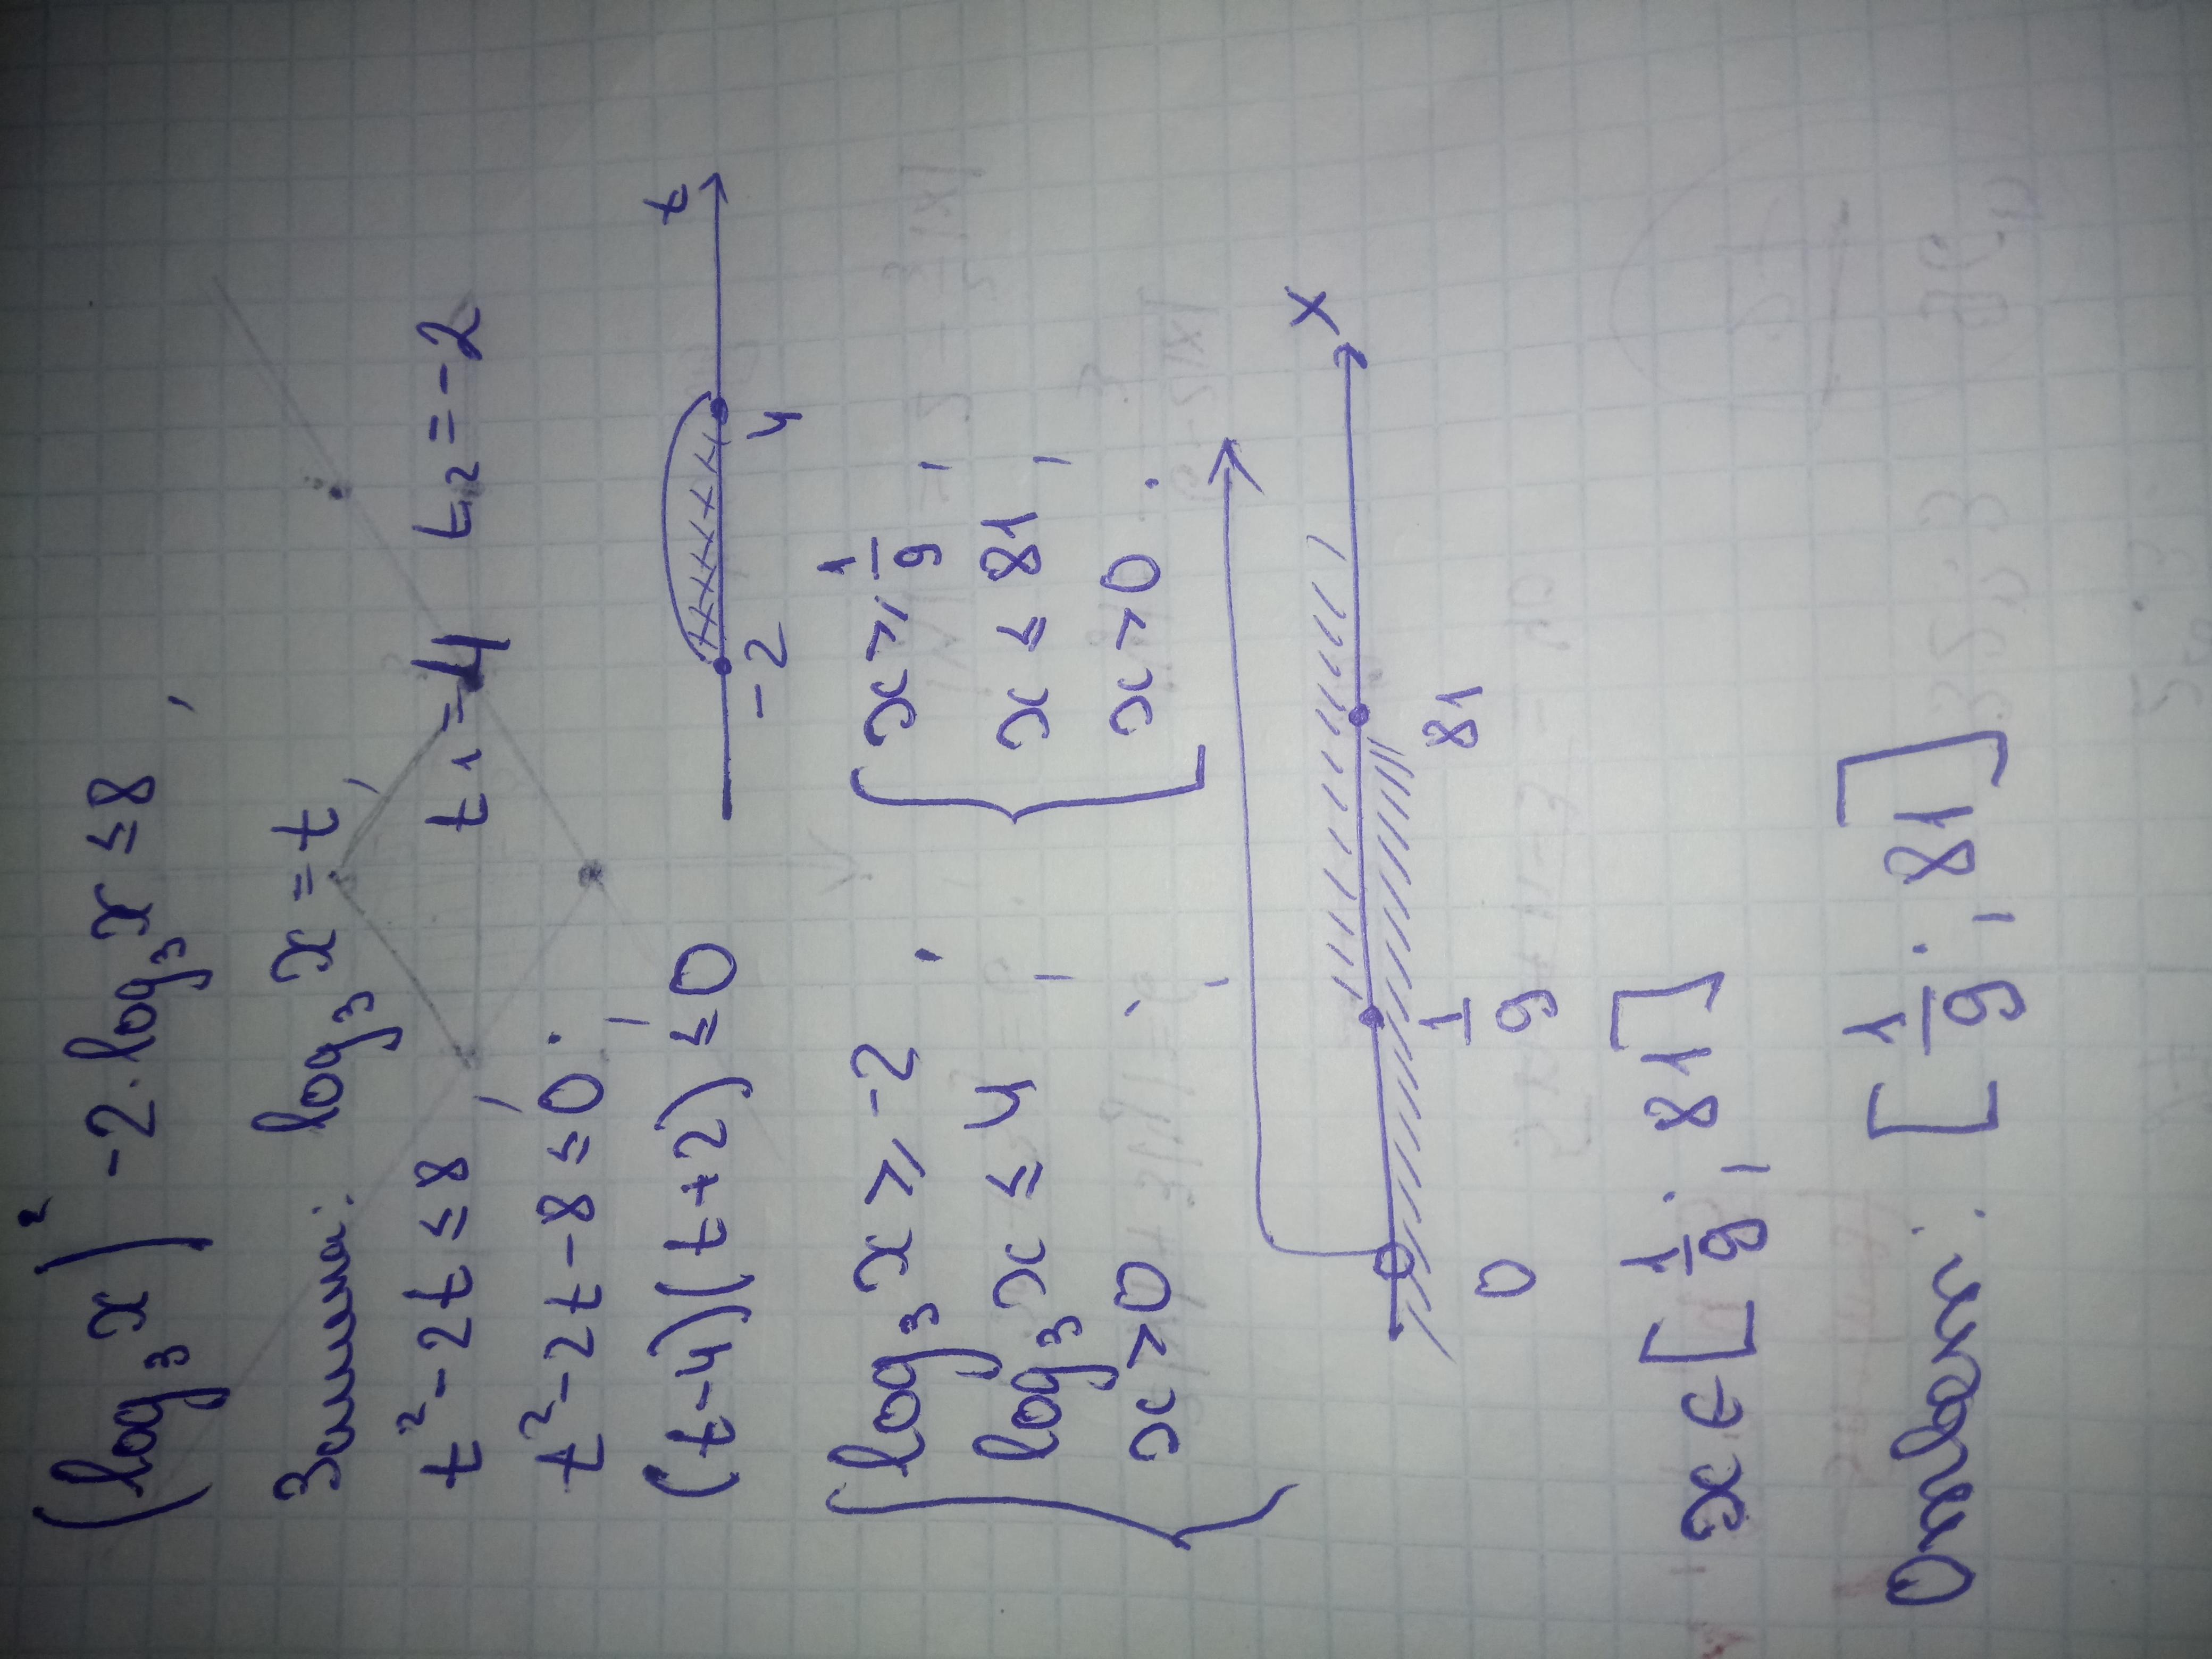 (log₃x)² - 2·log₃x ≤ 8,
Замена: log₃x = t,
t² - 2t ≤ 8, t₁ = 4 t₂ = -2
t² - 2t - 8 ≤ 0;
(t-4)(t+2) ≤ 0
-2 4 t
log₃x ≥ -2
log₃x ≤ 4;
x > 0;
x ≥ 1/9,
x ≤ 81,
x > 0.
0 1/9 81 x
x ∈ [1/9; 81]
Ответ: [1/9; 81]